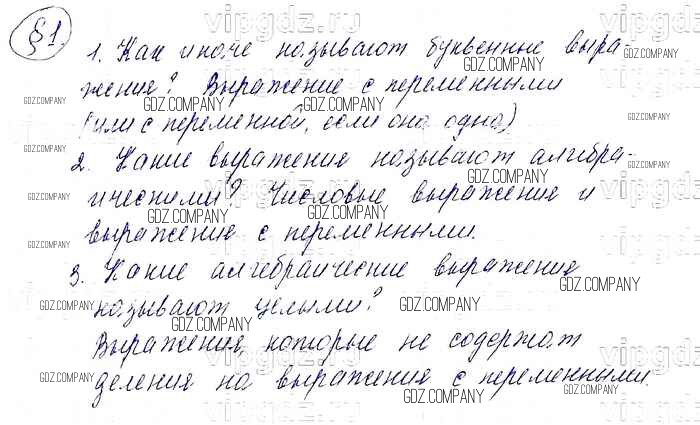 §1.
1. Как иначе называют буквенные выра-
жения? Выражение с переменными
(или с переменной, если она одна)
2. Какие выражения называют алгебра-
ическими? Числовые выражения и
выражение с переменными.
3. Какие алгебраические выражения
называют целыми?
Выражения, которые не содержат
деления на выражения с переменными.